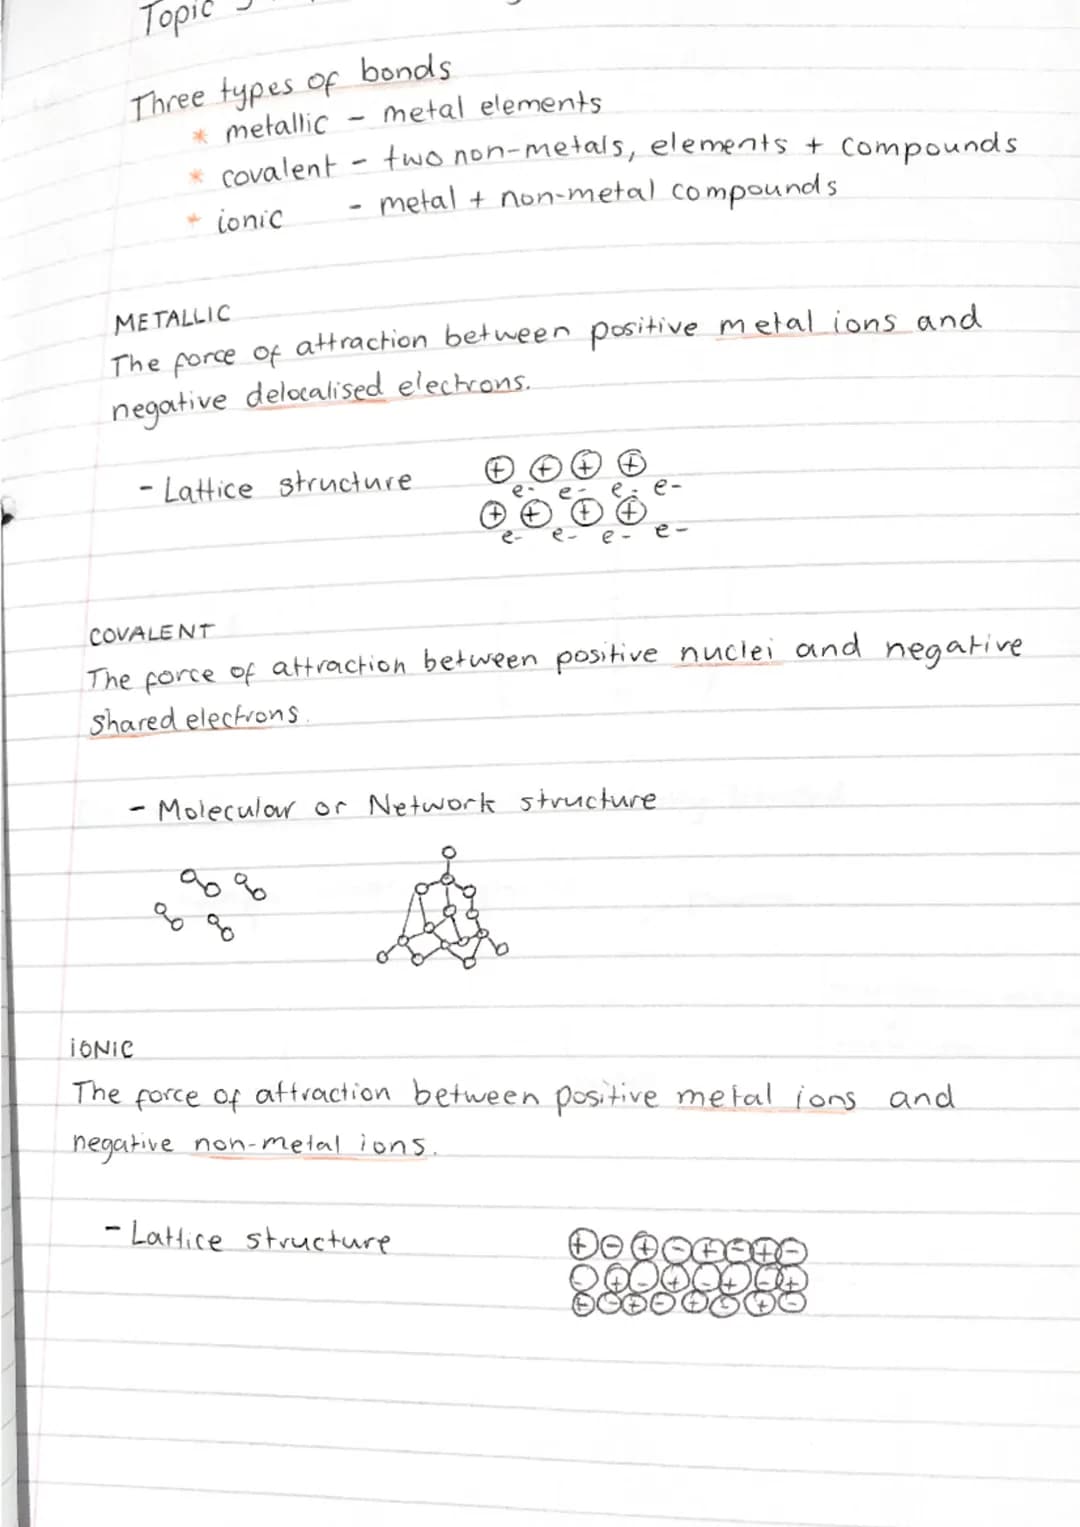 Topic
Three types of bonds
* metallic - metal elements
* covalent - two non-metals, elements + compounds
* ionic - metal + non-metal compounds
METALLIC
The force of attraction between positive metal ions and
negative delocalised electrons.
- Lattice structure
+ + + +
e- e- e- e-
+ + + +
e- e- e- e-
COVALENT
The force of attraction between positive nuclei and negative
shared electrons.
- Molecular or Network structure
IONIC
The force of attraction between positive metal ions and
negative non-metal ions.
- Lattice structure
+ - + - + - + -
- + - + - + - +
+ - + - + - + -